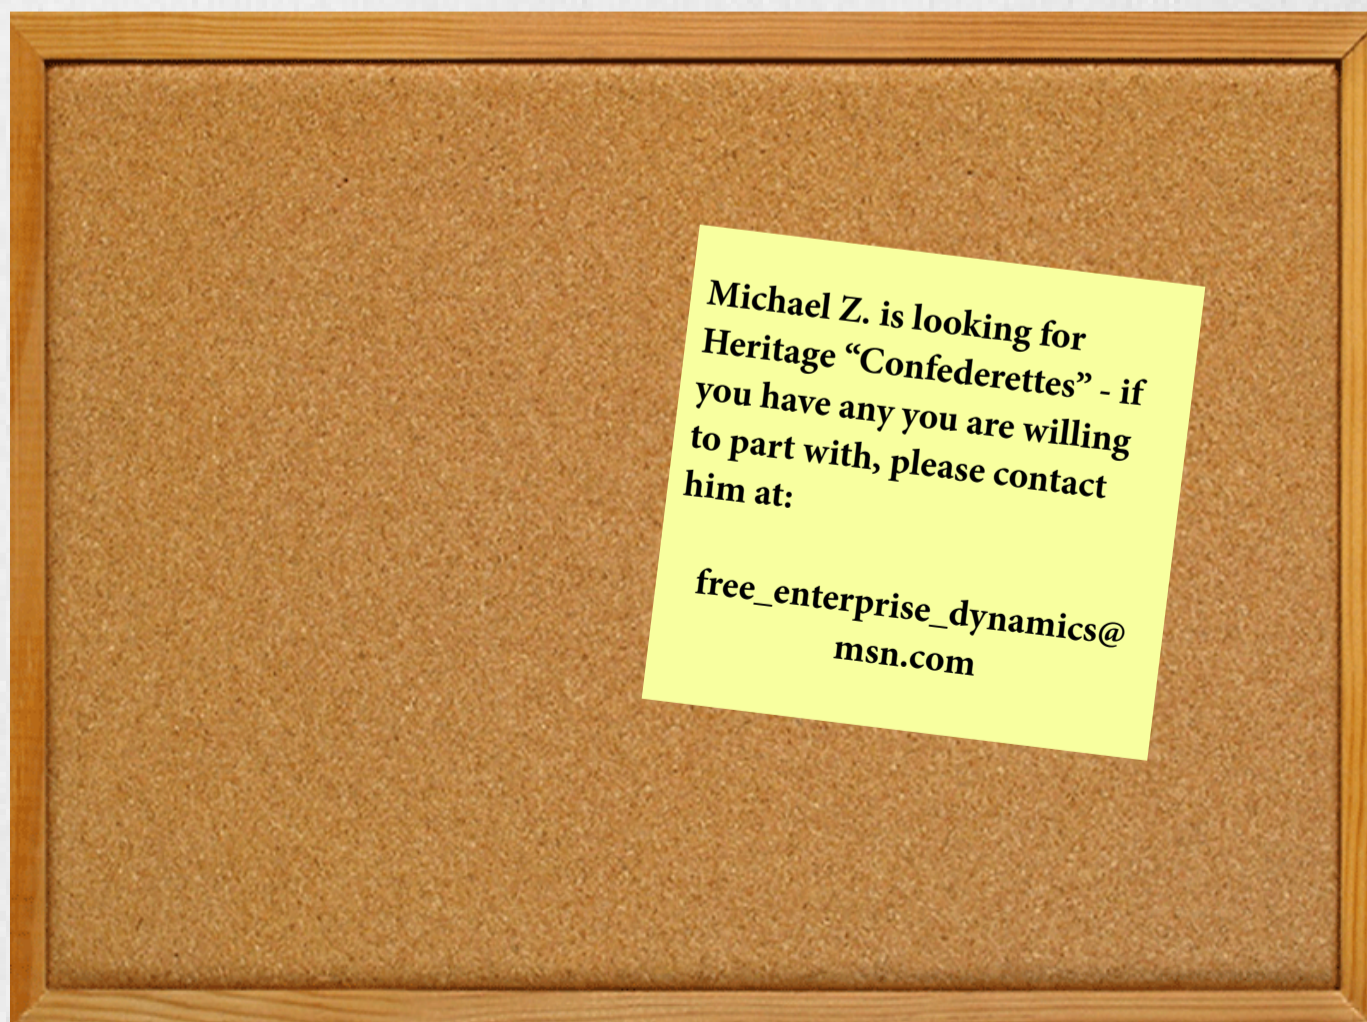 Michael Z. is looking for
Heritage “Confederettes” - if
you have any you are willing
to part with, please contact
him at:
free_enterprise_dynamics@
msn.com